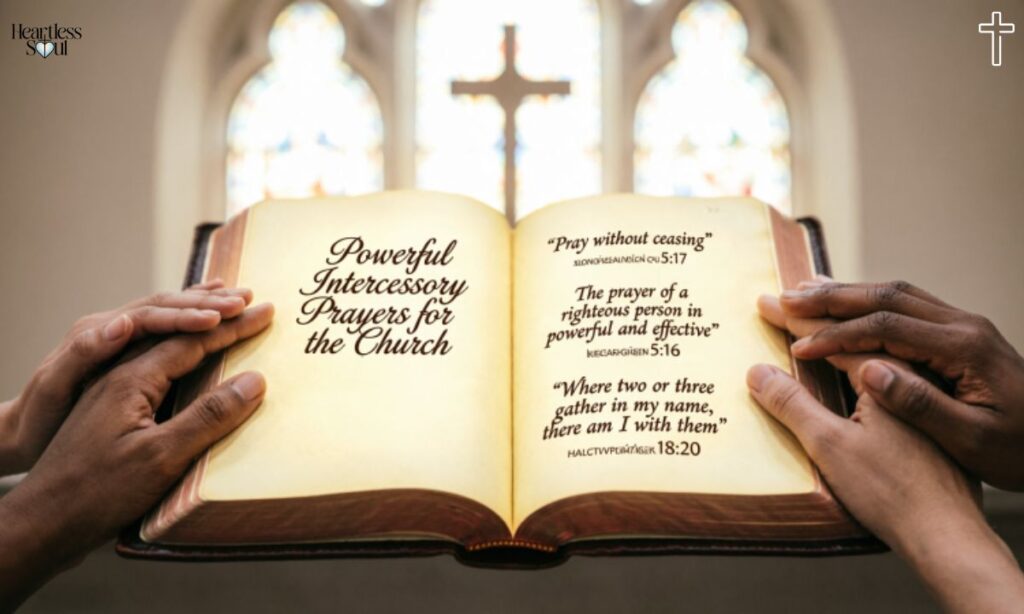 Heartless
Soul
Powerful
Intercessory
Prayers for
the Church
“Pray without ceasing”
5:17
The prayer of a
righteous person in
powerful and effective”
5:16
“Where two or three
gather in my name,
there am I with them”
18:20